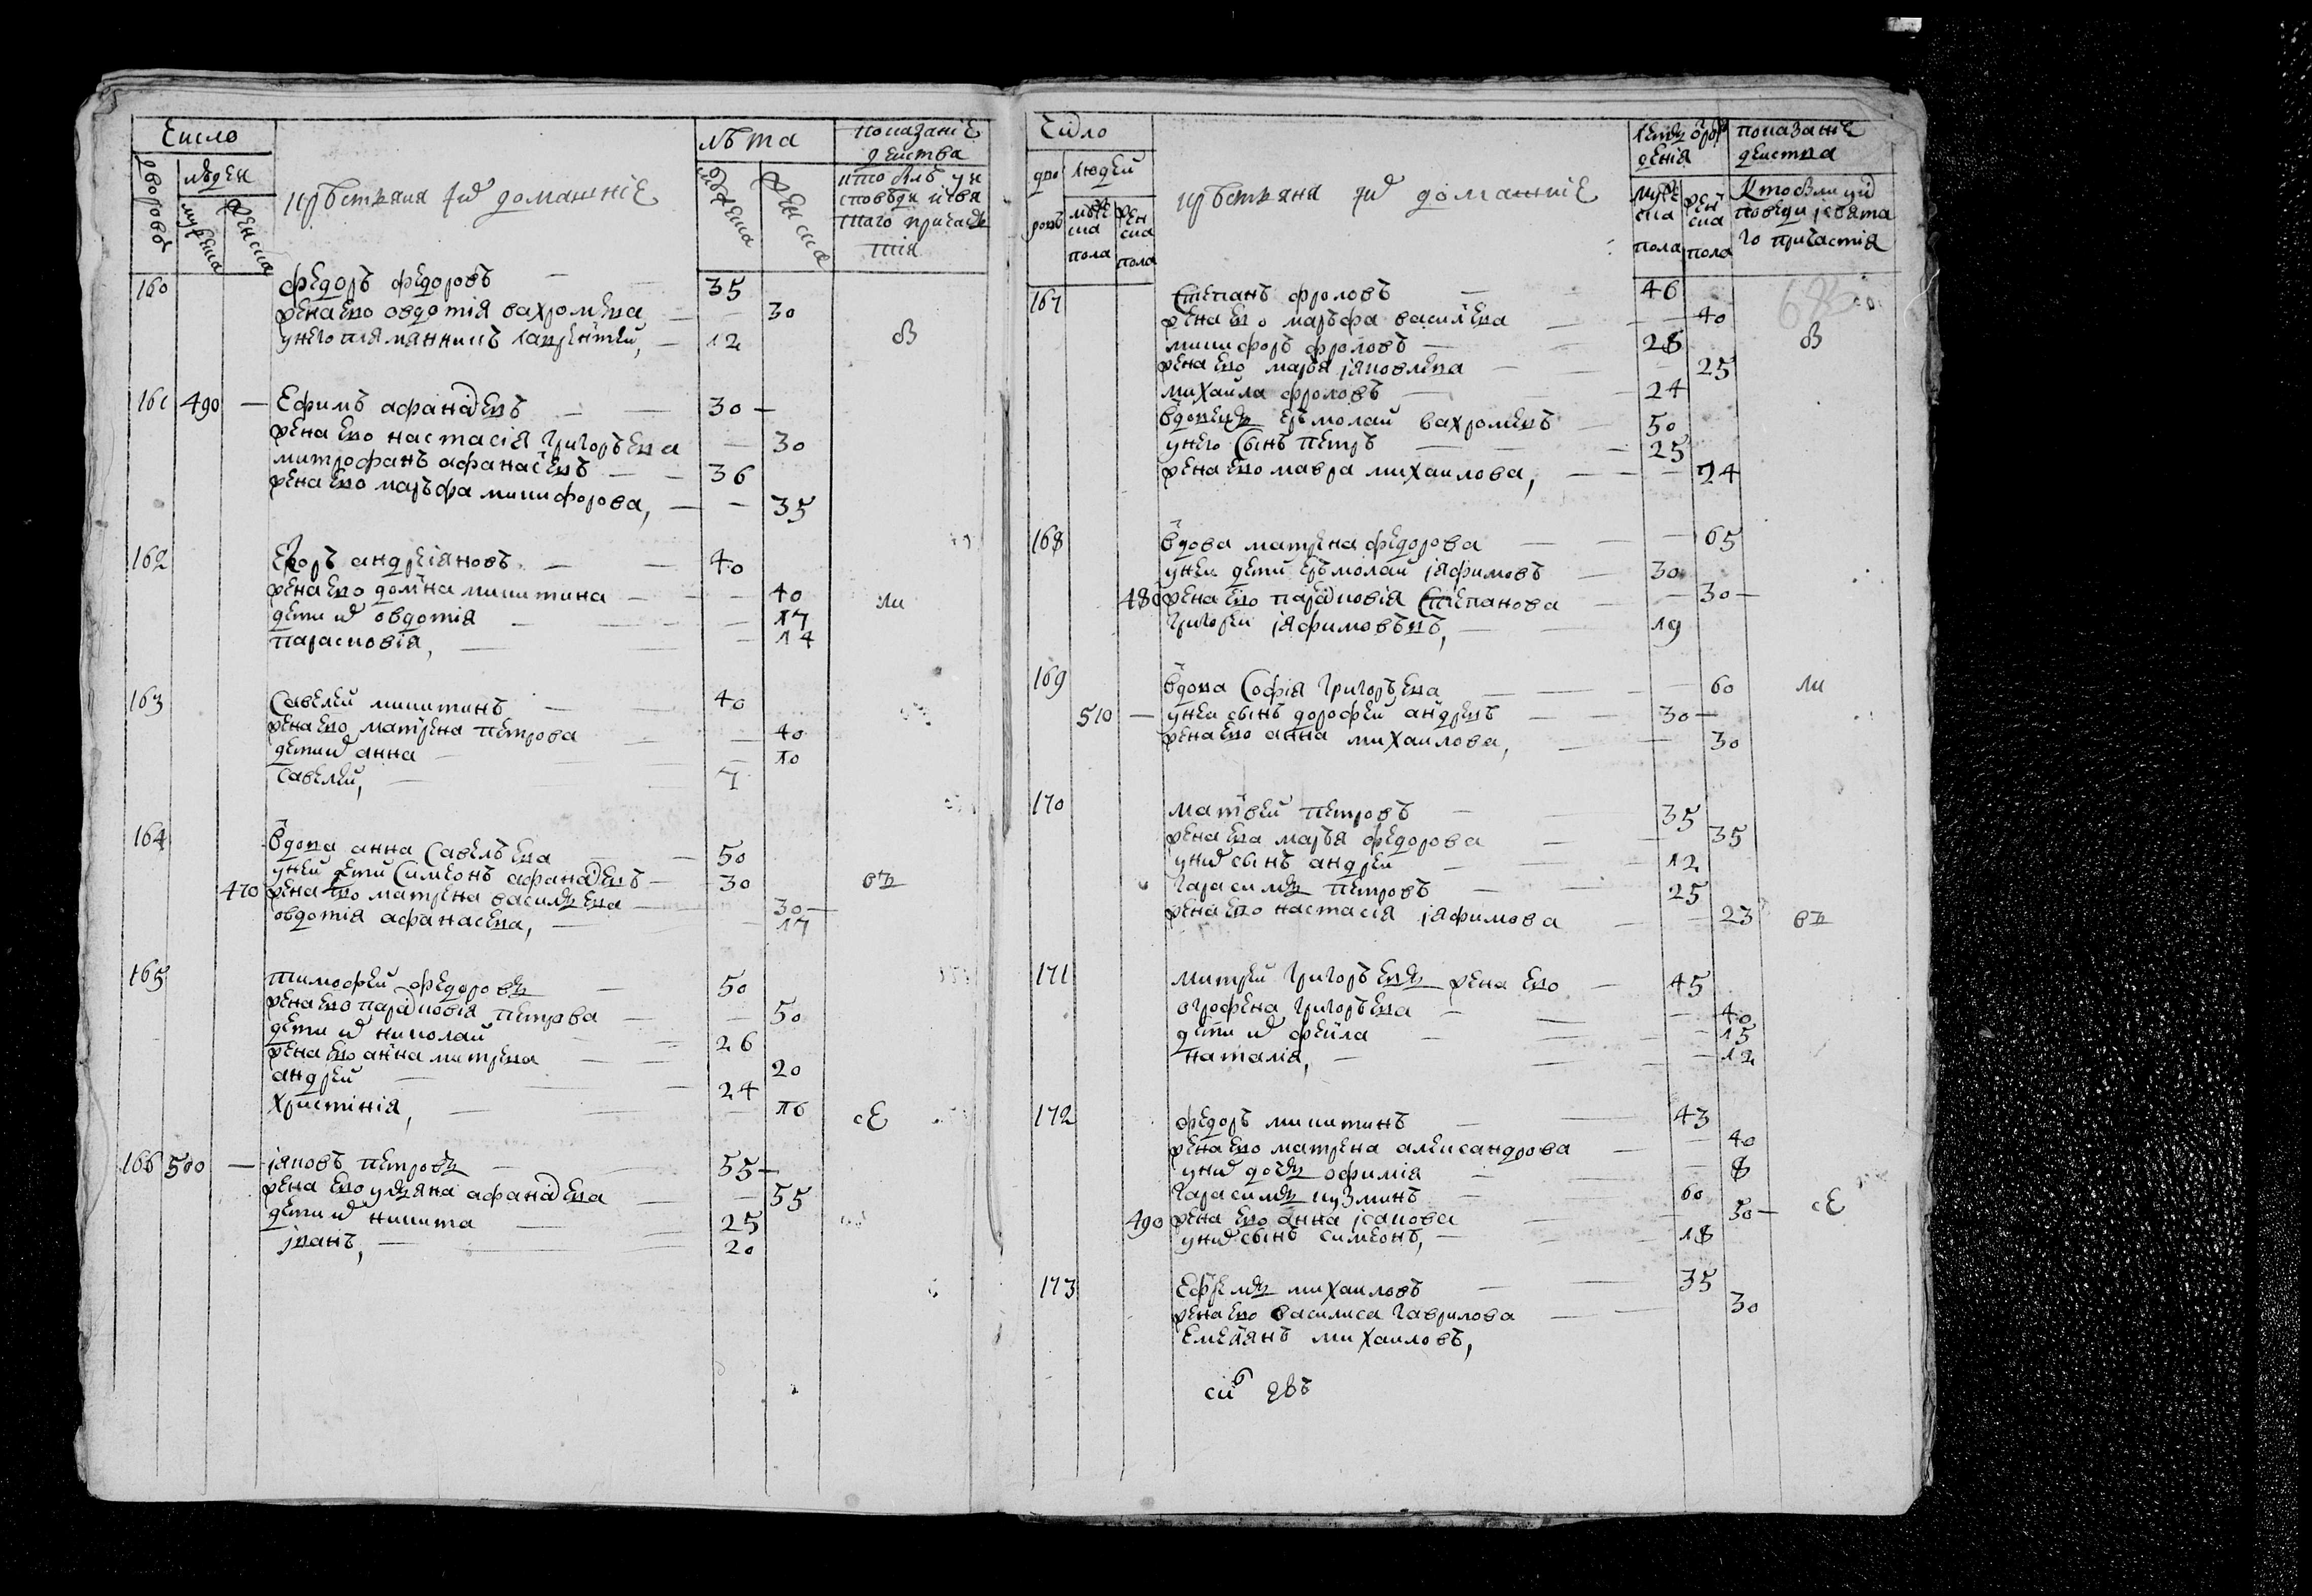 Число
дворовъ
людей
мужеска
женска
крестьяня и их домашніе
лѣта
мужеска
женска
показаніе
действа
кто былъ у и
споведи и свя
таго причас
тія
160 федоръ федоровъ — 35
жена ево овдотія вахромѣева — 30
у него племянникъ лаврентей, — 12 в
161 490 — Ефимъ афанасевъ — 30 —
жена ево настасія григорьева — 30
митрофанъ афанасевъ — 36
жена ево марѳа никифорова, — 35
162 Егоръ андреяновъ — 40
жена ево домна никитина — 40
дети их овдотія — 17 ли
парасковія, — 14
163 Савелей никитинъ — 40
жена ево матрена петрова — 40
дети их анна — 10
савелей, — 7
164 вдова анна савельева — 50
у ней дети Симеонъ афанасевъ — 30
470 жена ево матрена васильева — 30 —
овдотія афанасева, — 17
165 тимофей федоровъ — 50
жена ево парасковія петрова — 50
дети их николай — 26
жена ево анна митрева — 20
андрей — 24
христинія, — 16 сЕ
166 500 — іаковъ петровъ — 55 —
жена ево ульяна афанасева — 55
дети их никита — 25
іванъ, — 20
Число
дво
ровъ
людей
муже
ска
пола
жен
ска
пола
крестьяня их домашніе
дения
муже
ска
пола
жен
ска
пола
показаніе
действа
Кто были у ис
поведи і свята
го причастія
167 Степанъ фроловъ — 46
жена ево марѳа василева — 40
никифоръ фроловъ — 28 в
жена ево марья іаковлева — 25
михаила фроловъ — 24
вдовецъ ермолай вахромеевъ — 50
у него сынъ петръ — 25
жена ево мавра михаилова, — 24
168 вдова матрена федорова — 65
у неи дети ермолай іафимовъ — 30
480 жена ево парасковія Степанова — 30 —
григорей іафимовъ, — 19
169 вдова Софія григорьева — 60 ли
510 — у неи сынъ дорофей андревъ — 30 —
жена ево анна михаилова, — 30
170 матвей петровъ — 35
жена ева марья федорова — 35
у них сынъ андрей — 12
гарасимъ петровъ — 25
жена ево настасія іафимова — 23 въ
171 митрей григорьевъ жена ево — 45
огрофена григорьева — 40
дети их фекла — 15
наталія, — 12
172 федоръ никитинъ — 43
жена ево матрена александрова — 40
у них дочь офимія — 8
гарасимъ кузминъ — 60
490 жена ево анна ісакова — 50 — сЕ
у них сынъ симеонъ, — 18
173 Ефремъ михаиловъ — 35
жена ево василиса гаврилова — 30
Емельянъ михаиловъ,